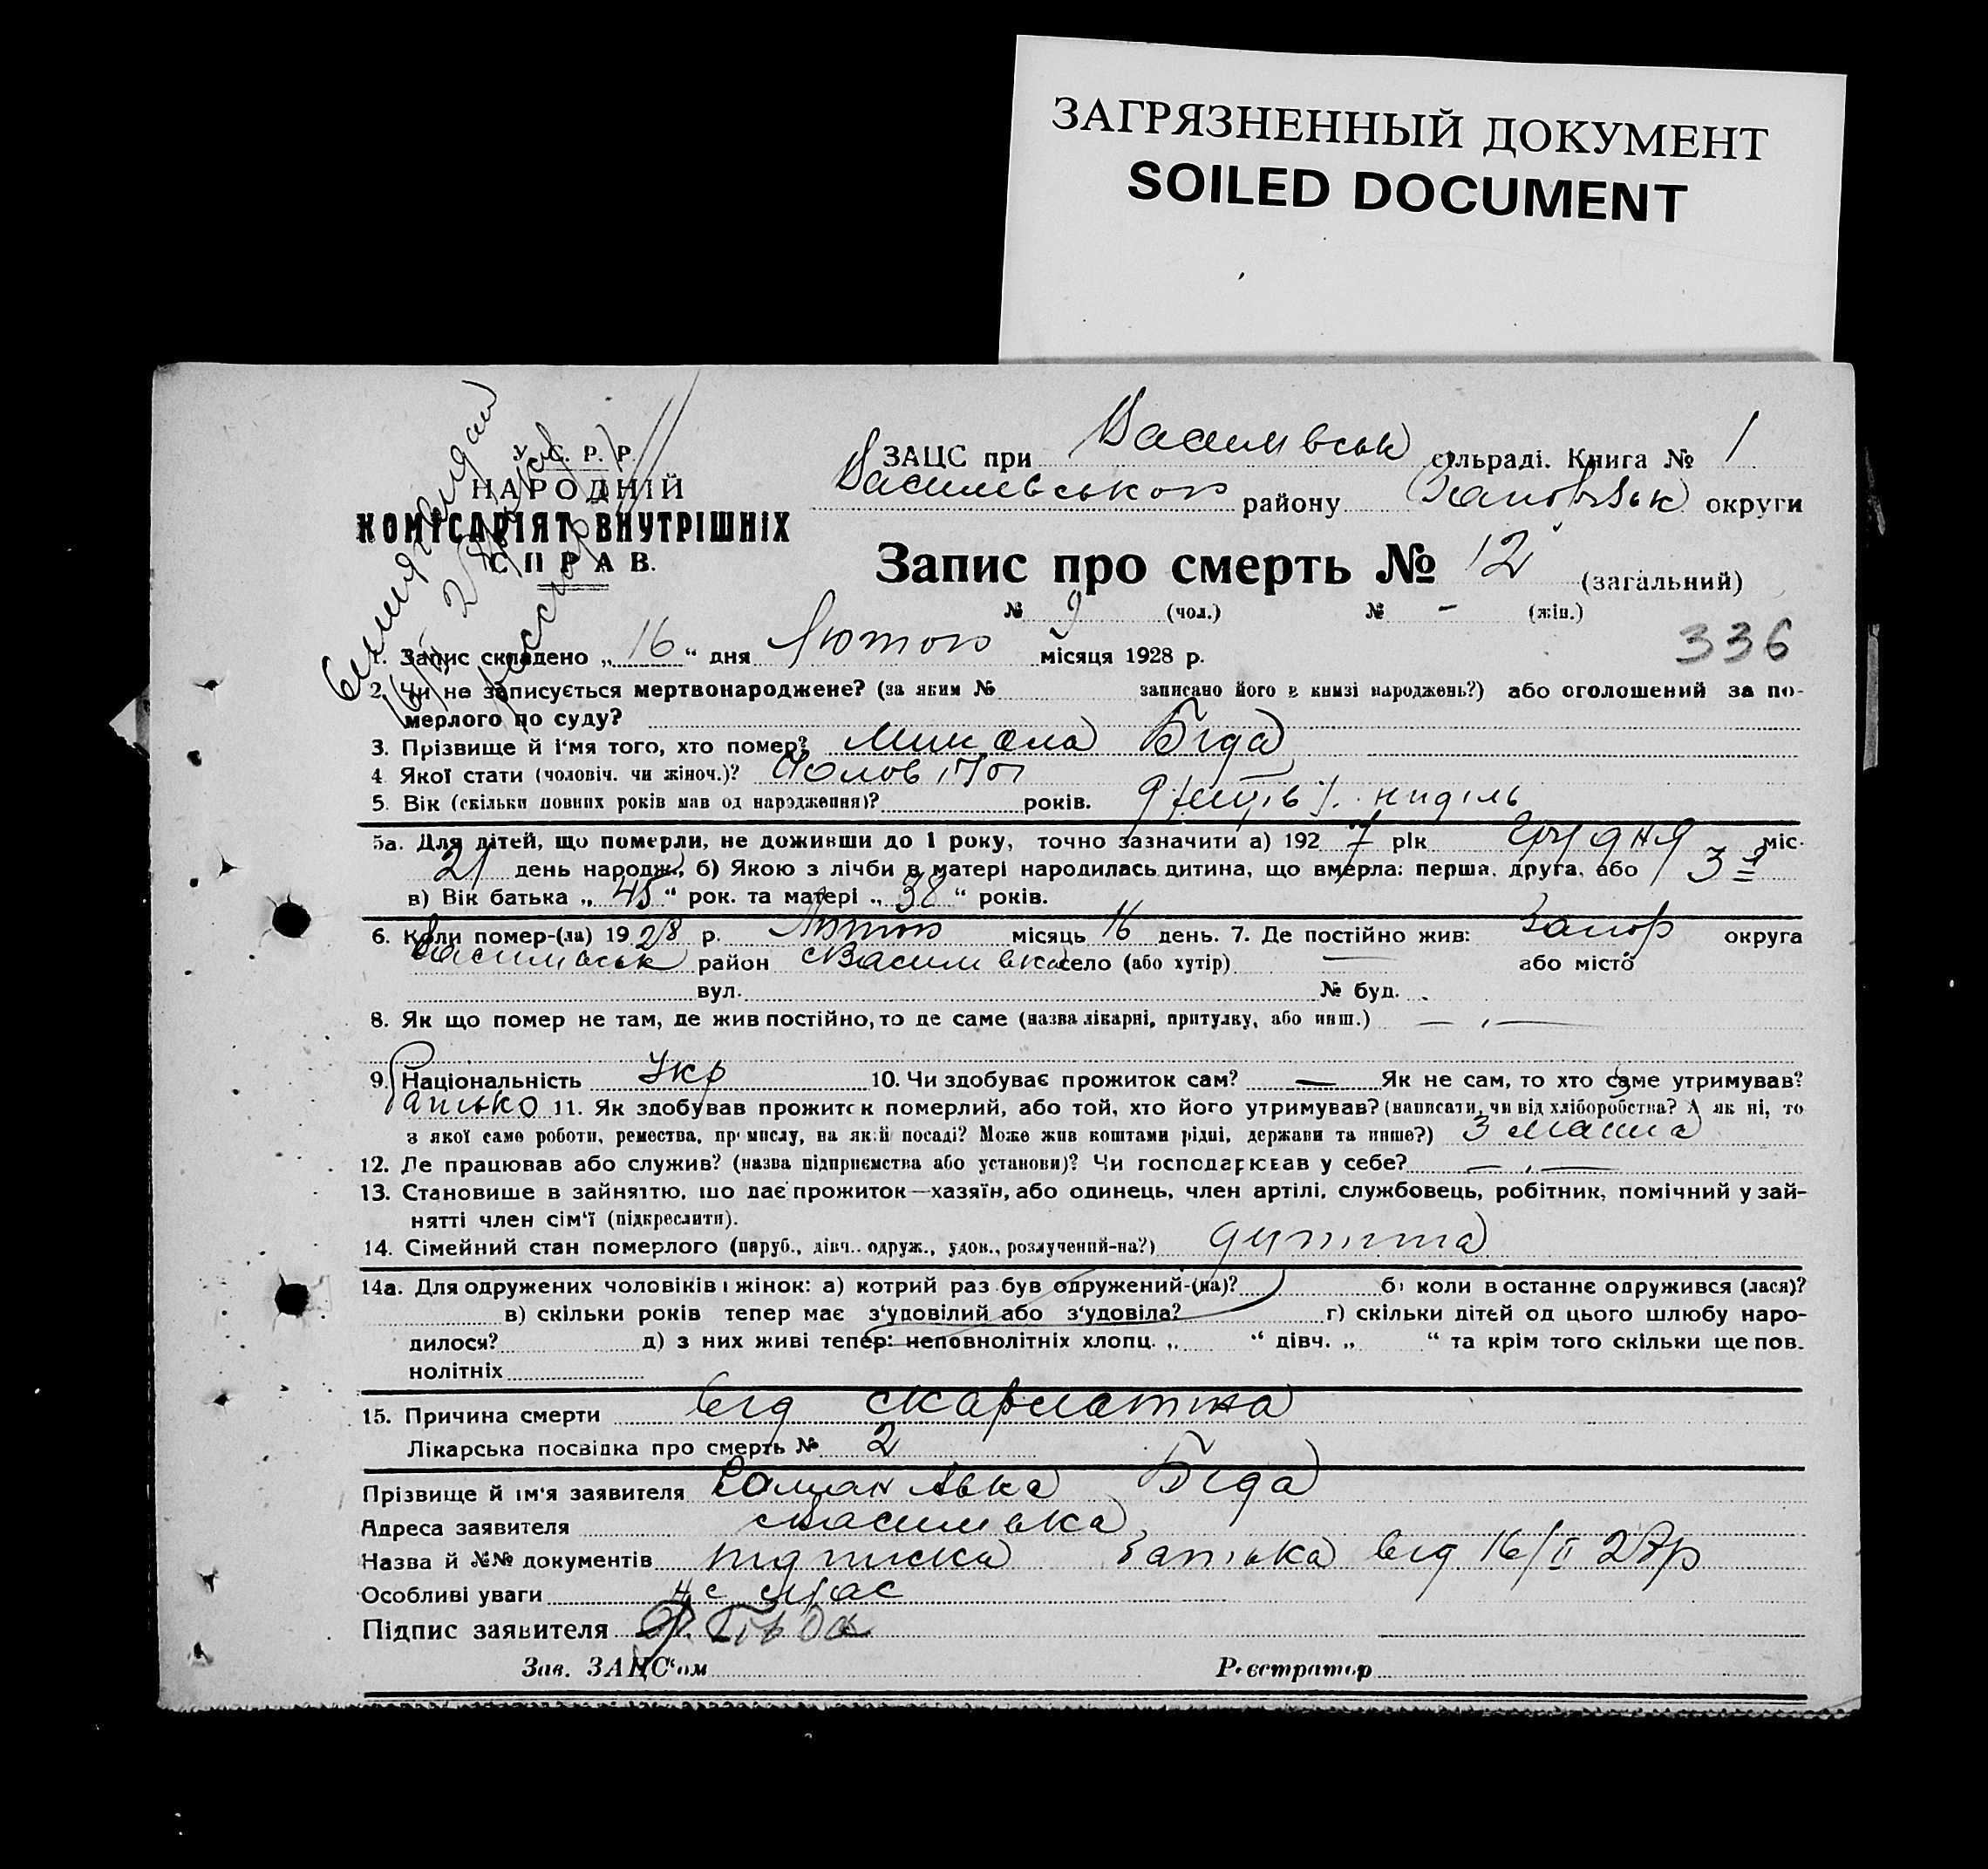 ЗАГРЯЗНЕННЫЙ ДОКУМЕНТ
SOILED DOCUMENT
У. С. Р. Р.
НАРОДНІЙ
КОМІСАРІЯТ ВНУТРІШНІХ
СПРАВ.
ЗАЦС при Василівськ сільраді. Книга № 1
Василевського району округи
Запис про смерть № 12 (загальний)
№ 9 (чол.) № – (жін.)
336
1. Запис складено „ 16 “ дня Лютого місяця 1928 р.
2. Чи не записується мертвонароджене? (за яким № записано його в книзі народжень?) або оголошений за по-
мерлого по суду?
3. Прізвище й ім'я того, хто помер? Микола Біда
4 Якої стати (чоловіч. чи жіноч.)?
5. Вік (скільки повних років мав од народження)? років. неділь
5а. Для дітей, що померли, не доживши до 1 року, точно зазначити а) 192 7 рік Грудня міс.
21 день народж., б) Якою з лічби в матері народилась дитина, що вмерла: перша, друга, або 3
в) Вік батька „ 45 “ рок. та матері „ 38 “ років.
6. Коли помер-(ла) 19 28 р. Лютого місяць 16 день. 7. Де постійно жив: Запор округа
Василівськ район Василівка село (або хутір) — або місто
вул. № буд.
8. Як що помер не там, де жив постійно, то де саме (назва лікарні, притулку, або инш.) —
9. Національність Укр 10. Чи здобуває прожиток сам? — Як не сам, то хто саме утримував?
Батько 11. Як здобував прожиток померлий, або той, хто його утримував? (написати, чи від хліборобства? А як ні, то
з якої саме роботи, ремества, промислу, на якій посаді? Може жив коштами рідні, держави та инше?)
12. Де працював або служив? (назва підприємства або установи)? Чи господарював у себе? —
13. Становище в зайняттю, що дає прожиток—хазяїн, або одинець, член артілі, службовець, робітник, помічний у зай-
нятті член сім'ї (підкреслити).
14. Сімейний стан померлого (паруб., дівч., одруж., удов., розлучений-на?) дитина
14а. Для одружених чоловіків і жінок: а) котрий раз був одружений-(на)? б) коли в останнє одружився (лася)?
в) скільки років тепер має з'удовілий або з'удовіла? г) скільки дітей од цього шлюбу наро-
дилося? д) з них живі тепер: неповнолітніх хлопц. „ “ дівч. „ “ та крім того скільки ще пов.
нолітніх
15. Причина смерти від скарлатина
Лікарська посвідка про смерть № 2
Прізвище й ім'я заявителя Біда
Адреса заявителя Василівка
Назва й №№ документів підписка Батька від 16/II 28р
Особливі уваги
Підпис заявителя Біда
Зав. ЗАЦС'ом Реєстратор